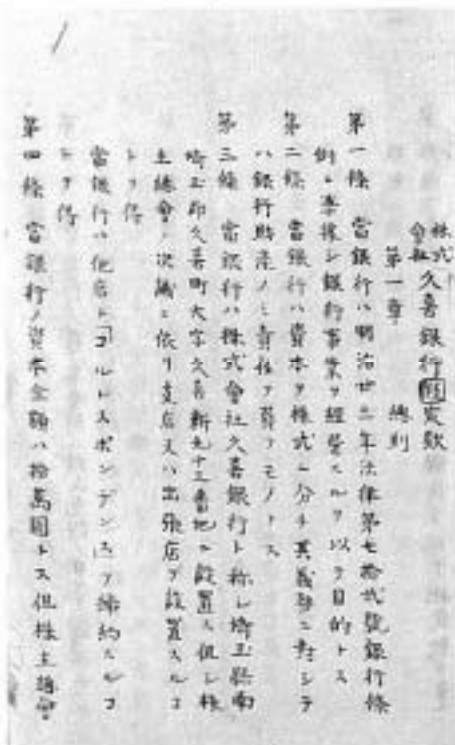 株式會社久喜銀行定款
第一章 總則
第一條 當銀行ハ明治廿三年法律第七拾貳號銀行條
例ニ準據シ銀行事業ヲ經營スルヲ以テ目的トス
第二條 當銀行ハ資本ヲ株式ニ分チ其義務ニ對シテ
ハ銀行財産ノミ責任ヲ負フモノトス
第三條 當銀行ハ株式會社久喜銀行ト稱シ埼玉縣南
埼玉郡久喜町大字久喜新九十三番地ニ設置ス但シ株
主總會ノ決議ニ依リ支店又ハ出張店ヲ設置スルコ
トヲ得
當銀行ハ他店ト「コルレスポンデンス」ヲ締約スルコ
トヲ得
第四條 當銀行ノ資本金額ハ拾萬圓トス但株主總會